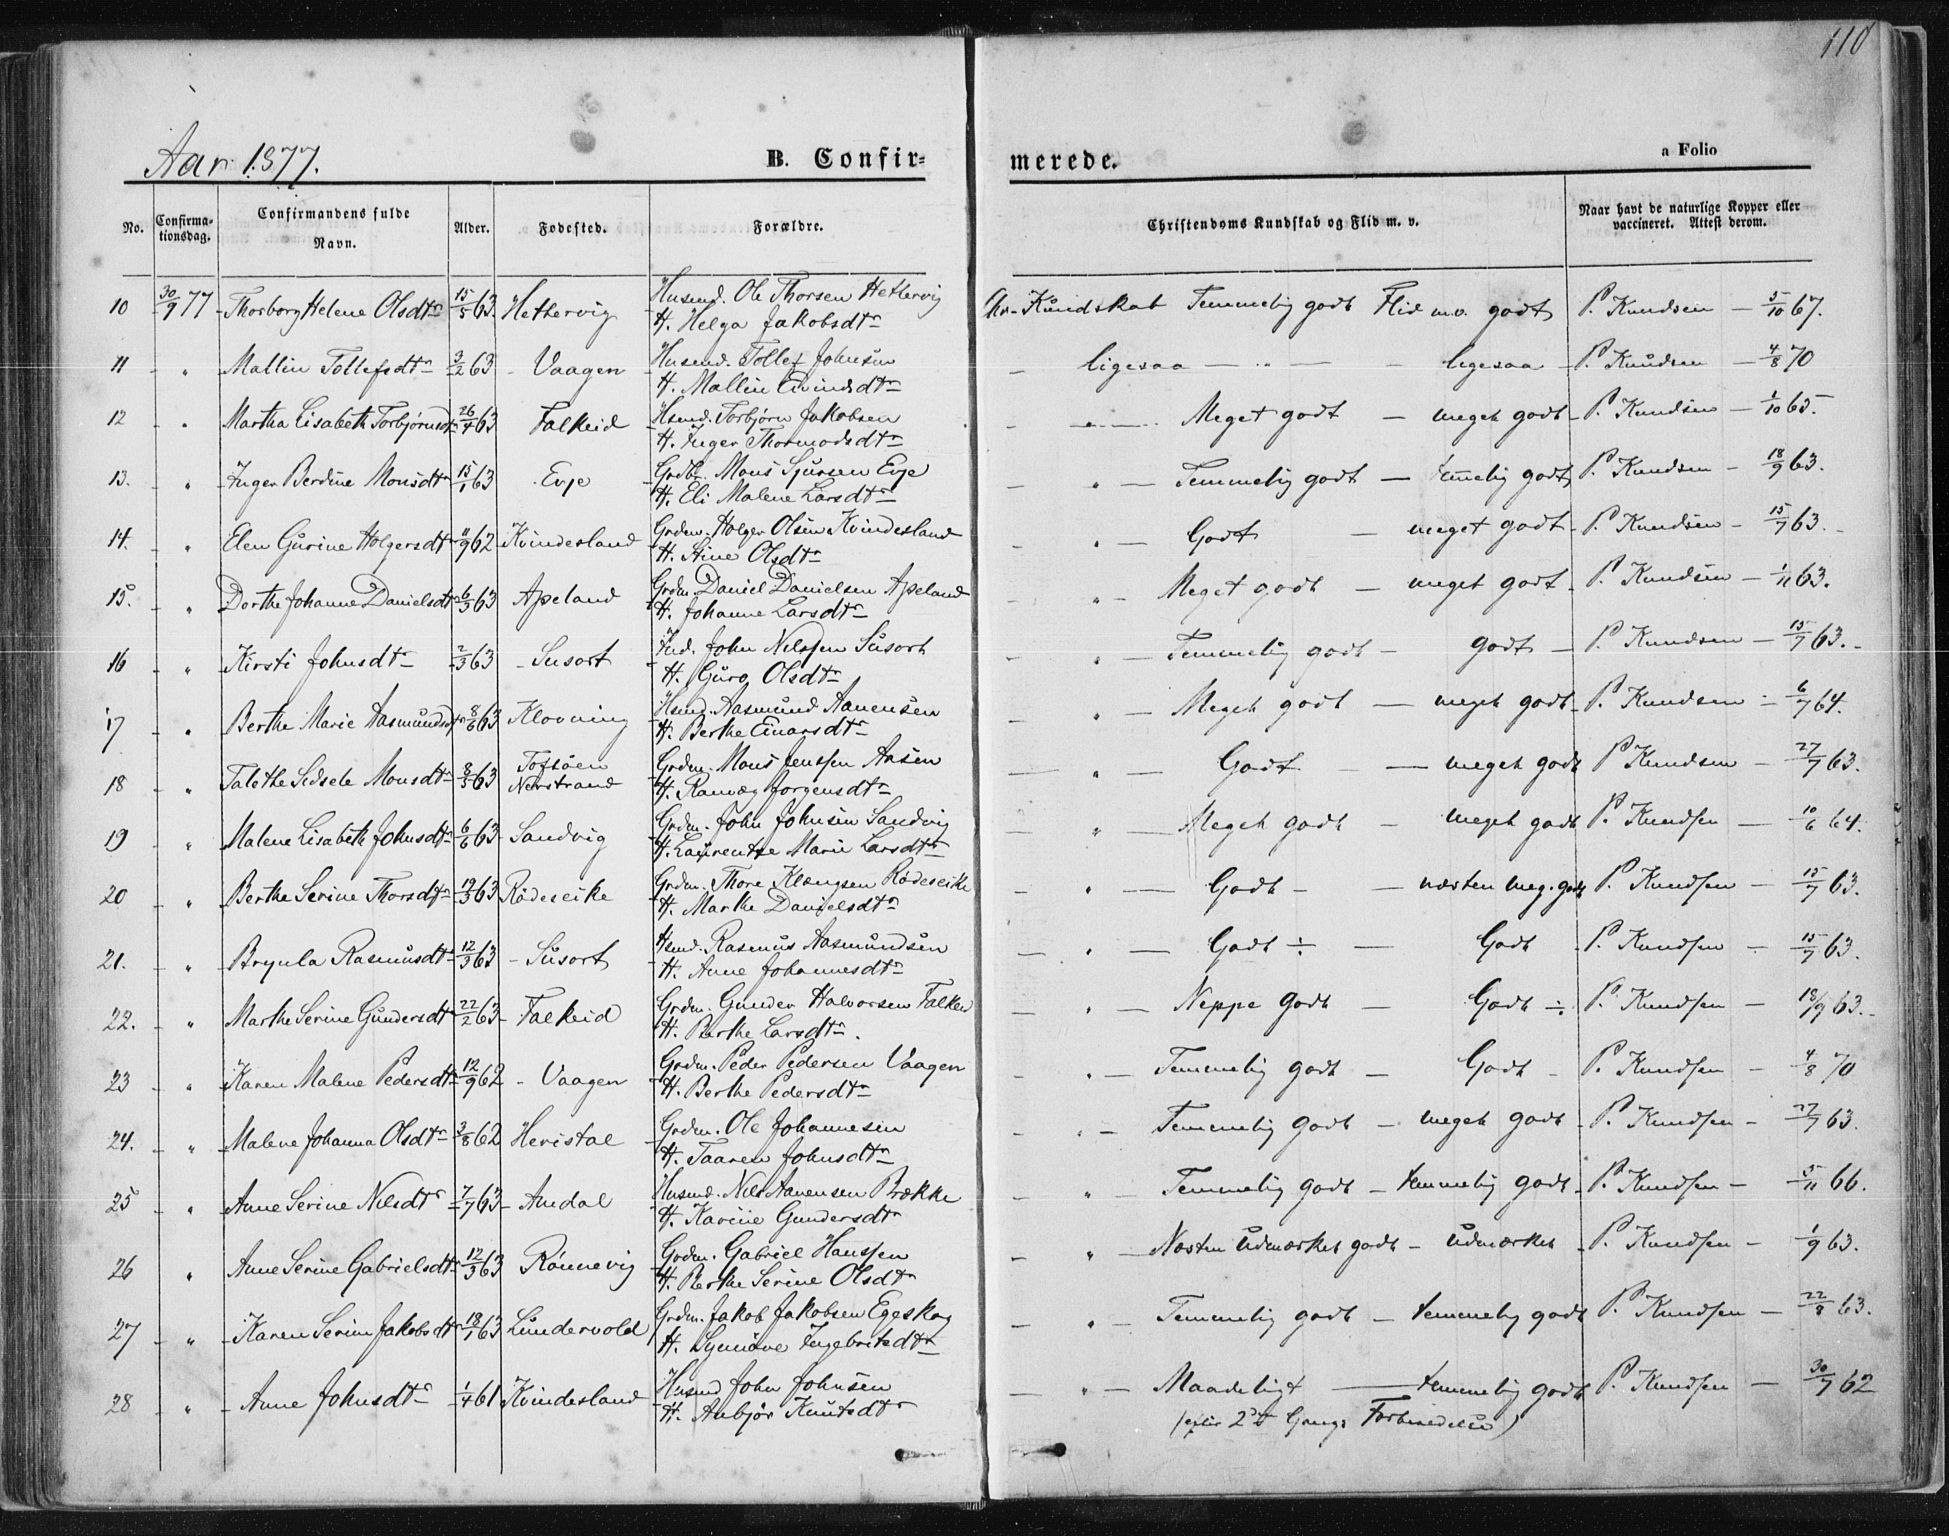 110
Aar 1877.
B. Confir=
merede.
a Folio
No.
Confirma-
tionsdag.
Confirmandens fulde
Navn.
Alder.
Fødested.
Forældre.
Christendoms Kundskab og Flid m. v.
Naar havt de naturlige Kopper eller
vaccineret. Attest derom.
10 30/9 77 Thorborg Helene Olsdtr 15/5 63. Hettervig Husmd. Ole Thorsen Hettervig
H. Helga Jakobsdtr
Chr. Kundskab Temmelig godt Flid m.v. godt P. Knudsen 5/10 67.
11 " Mallin Tollefsdtr 3/2 63 Vaagen Husmd. Tollef Johnsen
H. Mallin Eivindsdtr
ligesaa ligesaa P. Knudsen 4/8 70
12 " Martha Lisabeth Torbjørnsdtr 26/4 63 Falkeid Hsmd. Torbjørn Jakobsen
H. Inger Thormodsdtr
" Meget godt meget godt P. Knudsen 1/10 65.
13. " Inger Berdine Monsdtr 15/1 63 Evje Grdbr. Mons Sjursen Evje
H. Eli Malene Larsdtr
" Temmelig godt temelig godt P. Knudsen 18/9 63.
14. " Elen Gurine Holgersdtr 11/9 62 Kvindesland Grdm. Holger Olsen Kvindesland
H. Stine Olsdtr
" Godt meget godt P. Knudsen 15/7 63.
15. " Dorthe Johanne Danielsdtr 6/3 63 Apeland Grdm. Daniel Danielsen Apeland
H. Johanne Larsdtr
" Meget godt meget godt P. Knudsen 1/11 63.
16 " Kirsti Johnsdtr 2/3 63 Susort Ind. John Nilssen Susort
H. Guro Olsdtr
" Temmelig godt godt P. Knudsen 15/7 63.
17 " Berthe Marie Aasmundsdtr 8/6 63 Klovning Hsmd. Aasmund Aanensen
H. Berthe Einarsdtr
" Meget godt meget godt P. Knudsen 6/7 64.
18 " Talethe Sidsele Monsdtr 8/3 63 Toftøen
Nerstrand Grdm. Mons Jenssen Aasen
H. Ranvæg Jorgensdtr
" Godt meget godt P Knudsen 27/7 63.
19 " Malene Lisabeth Johnsdtr 6/6 63 Sandvig Grdm. John Johnsen Sandvig
H. Laurentze Marie Larsdtr
" Meget godt meget godt P. Knudsen 10/6 64.
20 " Berthe Serine Thorsdtr 19/3 63 Rødeseike Grdm. Thore Klængsen Rødeseike
H. Marthe Danielsdtr
" Godt næsten meg. godt P. Knudsen 15/7 63.
21. " Brynla Rasmusdtr 12/3 63 Susort Hsmd. Rasmus Aasmundsen
H. Anne Johannesdtr
" Godt ÷ Godt P. Knudsen 15/7 63.
22. " Marthe Serine Gundersdtr 22/2 63 Falkeid Grdm. Gunder Halvorsen Falkeid
H. Berthe Larsdtr.
" Neppe Godt Godt ÷ P. Knudsen 18/9 63.
23 " Karen Malene Pedersdtr 12/9 62 Vaagen Grdm. Peder Pedersen Vaagen
H. Berthe Pedersdtr
" Temmelig godt Godt P. Knudsen 4/8 70
24. " Malene Johanna Olsdtr 3/8 62 Heristal Grdm. Ole Johannesen
H. Taaren Johnsdtr
" Temmelig godt meget godt P. Knudsen 27/7 63.
25 " Anne Serine Nilsdtr 7/7 63 Amdal Husmd. Nils Aanensen Brække
H. Karine Gundersdtr
" Temmelig godt temmelig godt P. Knudsen 5/11 66.
26 " Anne Serine Gabrielsdtr 12/3 63 Rønnevig Grdm. Gabriel Hanssen
H. Berthe Serine Olsdtr
" Næsten Udmærket godt udmærket P. Knudsen 1/9 63.
27 " Karen Serine Jakobsdtr 19/1 63 Lundervold Grdm. Jakob Jakobsen Egeskog
H. Synnøve Ingebritsdtr
" Temmelig godt temmelig godt P. Knudsen 22/8 63.
28 " Anne Johnsdtr 1/4 61 Kvindesland Husmd John Johnsen
H. Anbjør Knutsdtr
" Maadeligt temmelig godt P. Knudsen 30/7 62
(efter 2de Gangs Forberedelse)